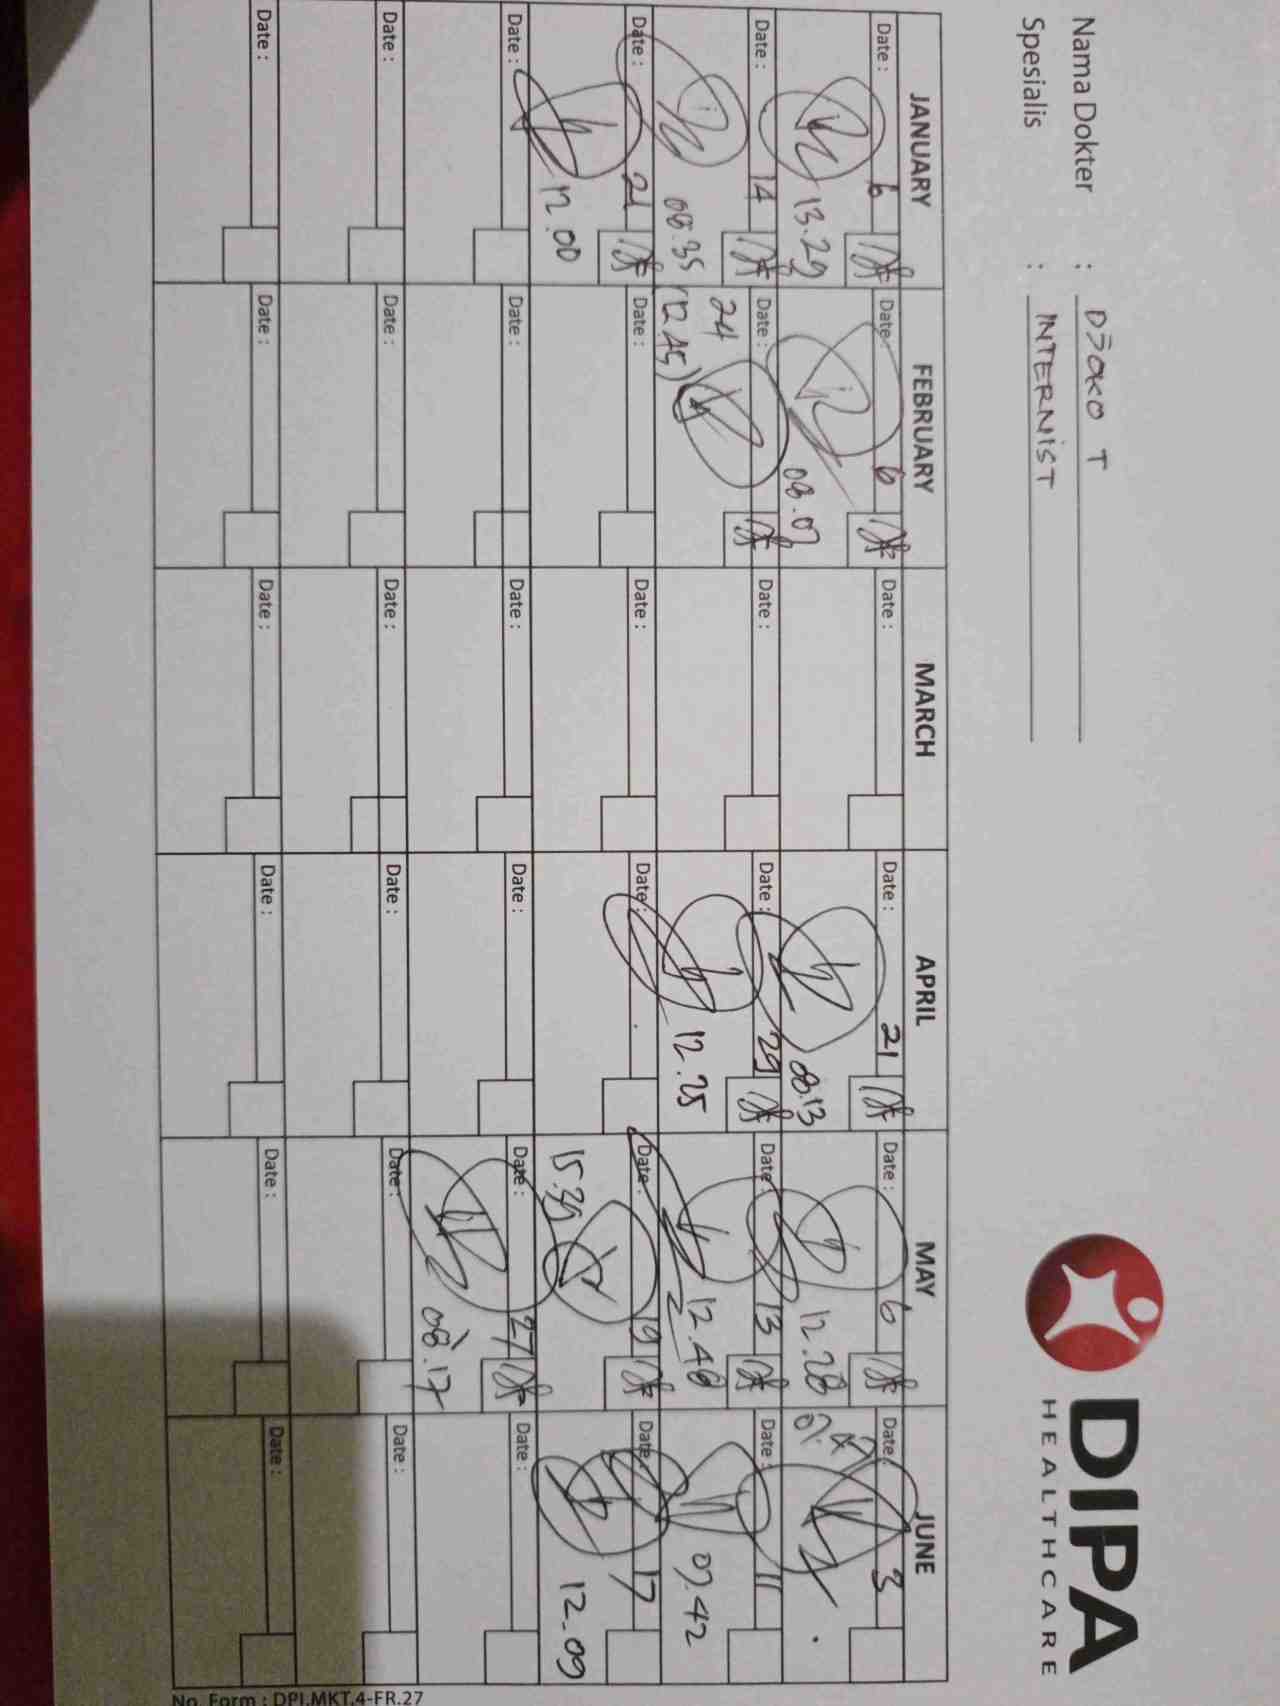 DIPA
HEALTHCARE
Nama Dokter : DJOKO T
Spesialis : INTERNIST
JANUARY FEBRUARY MARCH APRIL MAY JUNE
Date : 6 Date : 6 Date : Date : 21 Date : 6 Date : 3
13.29 08.07 08.13 12.28
Date : 14 Date : 24 Date : Date : 29 Date : 13 Date : 11
08.35 (12.45) 12.25 12.46 07.42
Date : 21 Date : Date : Date : Date : 19 Date : 17
12.00 15.30 12.09
Date : Date : Date : Date : Date : 27 Date :
08.17
Date : Date : Date : Date : Date : Date :
Date : Date : Date : Date : Date : Date :
No. Form : DPI.MKT.4-FR.27